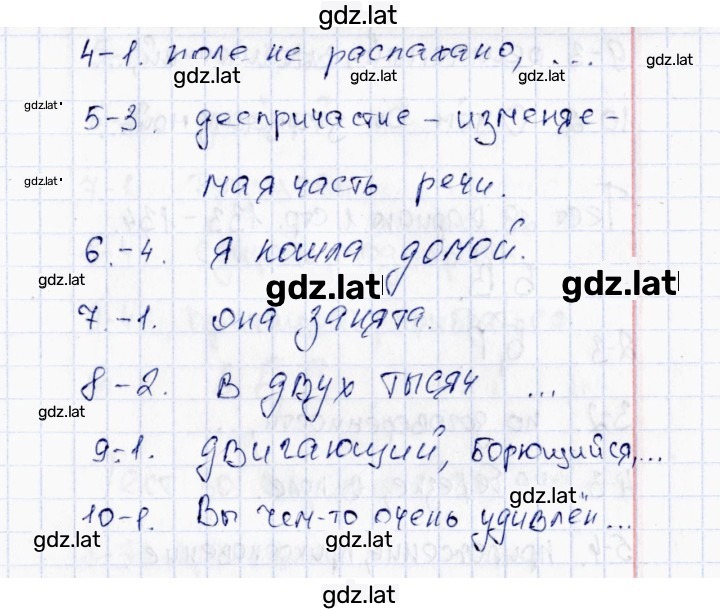 gdz.lat
4-1. поле не распахано, ...
gdz.lat gdz.lat gdz.lat gdz.lat
gdz.lat
5-3. деепричастие – изменяе-
gdz.lat
мая часть речи.
6.-4. Я пошла домой.
gdz.lat gdz.lat gdz.lat
7.-1. она занята.
8-2. В двух тысяч ...
gdz.lat
9-1. двигающий, борющийся, ...
gdz.lat
10-1. Вы чем-то очень удивлён ...
gdz.lat gdz.lat gdz.lat
gdz.lat